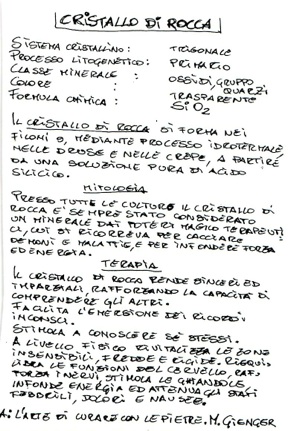 CRISTALLO DI ROCCA
SISTEMA CRISTALLINO: TRIGONALE
PROCESSO LITOGENETICO: PRIMARIO
CLASSE MINERALE: OSSIDI, GRUPPO QUARZI
COLORE: TRASPARENTE
FORMULA CHIMICA: SiO2
IL CRISTALLO DI ROCCA SI FORMA NEI
FILONI O, MEDIANTE PROCESSO IDROTERMALE
NELLE DRUSE E NELLE CREPE, A PARTIRE
DA UNA SOLUZIONE PURA DI ACIDO
SILICICO.
MITOLOGIA
PRESSO TUTTE LE CULTURE IL CRISTALLO DI
ROCCA E' SEMPRE STATO CONSIDERATO
UN MINERALE DAI POTERI MAGICO TERAPEUTI
CI, CUI SI RICORREVA PER CACCIARE
DEMONI E MALATTIE, E PER INFONDERE FORZA
ED ENERGIA.
TERAPIA
IL CRISTALLO DI ROCCA RENDE SINCERI ED
IMPARZIALI, RAFFORZANDO LA CAPACITÀ DI
COMPRENDERE GLI ALTRI.
FACILITA L'EMERSIONE DEI RICORDI
INCONSCI.
STIMOLA A CONOSCERE SÉ STESSI.
A LIVELLO FISICO RIVITALIZZA LE ZONE
INSENSIBILI, FREDDE E RIGIDE. RIEQUI
LIBRA LE FUNZIONI DEL CERVELLO, RAF
FORZA I NERVI, STIMOLA LE GHIANDOLE,
INFONDE ENERGIA ED ATTENUA GLI STATI
FEBBRILI, DOLORI E NAUSEE.
A: L'ARTE DI CURARE CON LE PIETRE. M. GIENGER